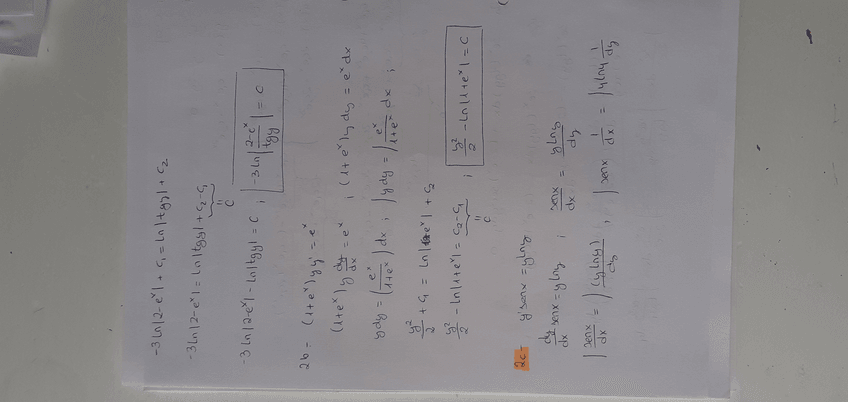 -3 ln|2-eˣ| + C₁ = ln|tgy| + C₂
-3 ln|2-eˣ| = ln|tgy| + C₂-C₁
C
-3 ln|2-eˣ| - ln|tgy| = C ; |-3 ln|(2-eˣ)/tgy| = C
2b = (1+eˣ) y y' = eˣ
(1+eˣ) y dy/dx = eˣ ; (1+eˣ) y dy = eˣ dx
y dy = (eˣ/(1+eˣ)) dx ; ∫y dy = ∫ eˣ/(1+eˣ) dx ;
y²/2 + C₁ = ln|1+eˣ| + C₂
y²/2 - ln|1+eˣ| = C₂-C₁ ; y²/2 - ln|1+eˣ| = C
C
2c - y' senx = y lny
dy/dx senx = y lny ; senx/dx = y lny/dy
∫ senx/dx = ∫ (y lny)/dy ; ∫ senx 1/dx = ∫ y lny 1/dy